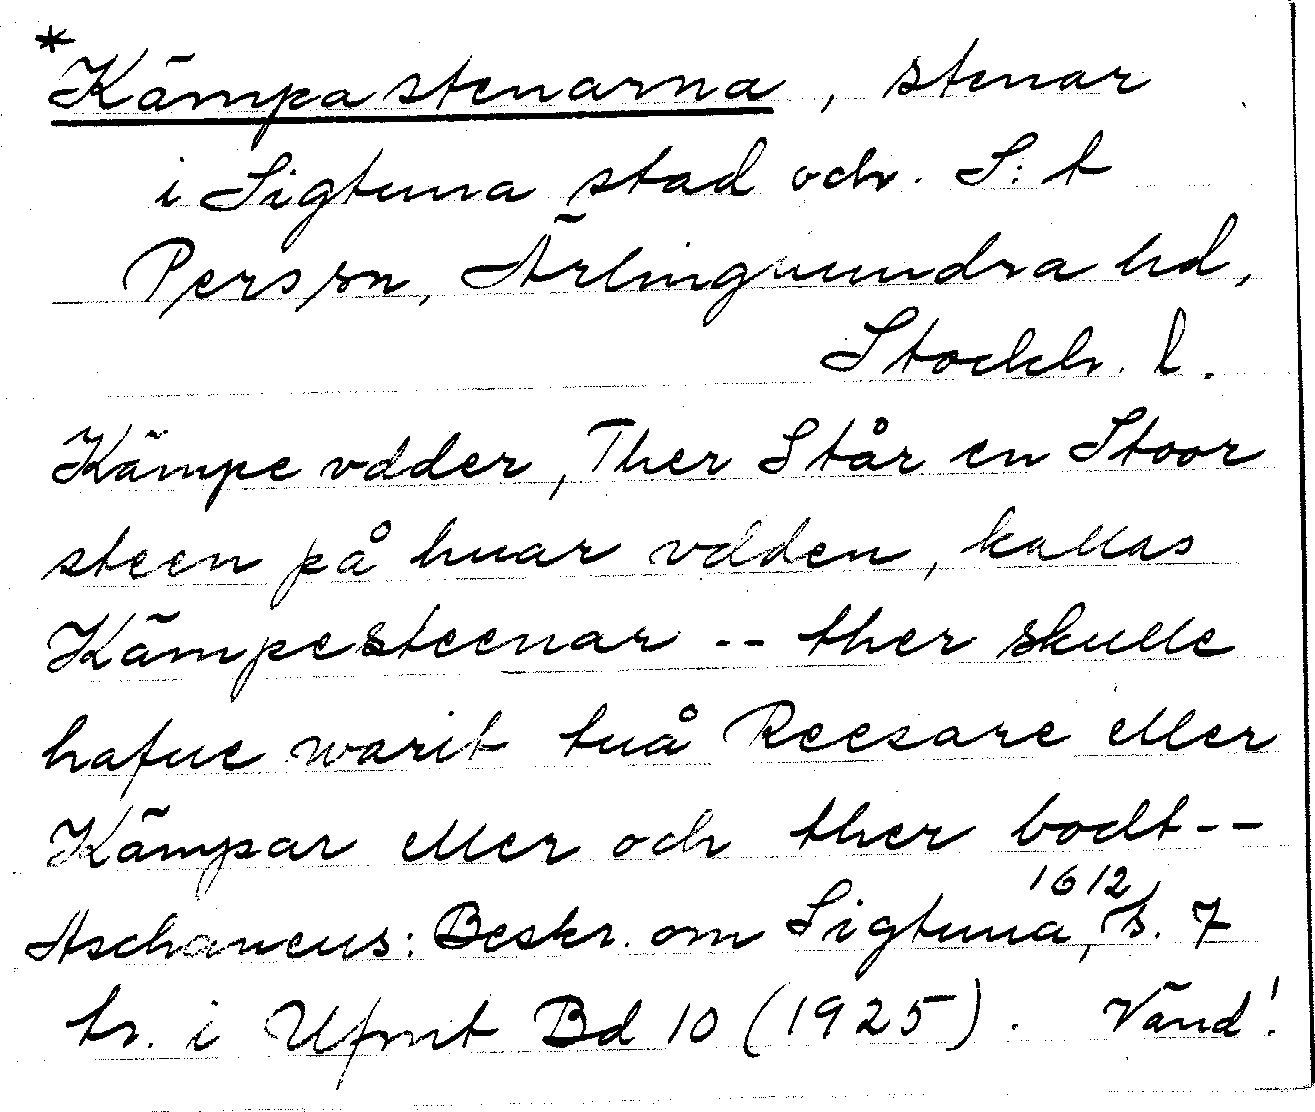 *Kämpastenarna, stenar
i Sigtuna stad och. S:t
Persson, Ärlinghundra hd,
Stockh. l.
Kämpe vdder, Ther Står en Stoor
steen på huar vdden, kallas
Kämpesteenar -- ther skulle
hafue warit tuå Reesare eller
Kämpar eller och ther bodt--
Aschaneus: Beskr. om Sigtuna, 1612, s. 7
tr. i Ufmt Bd 10 (1925). Vänd!